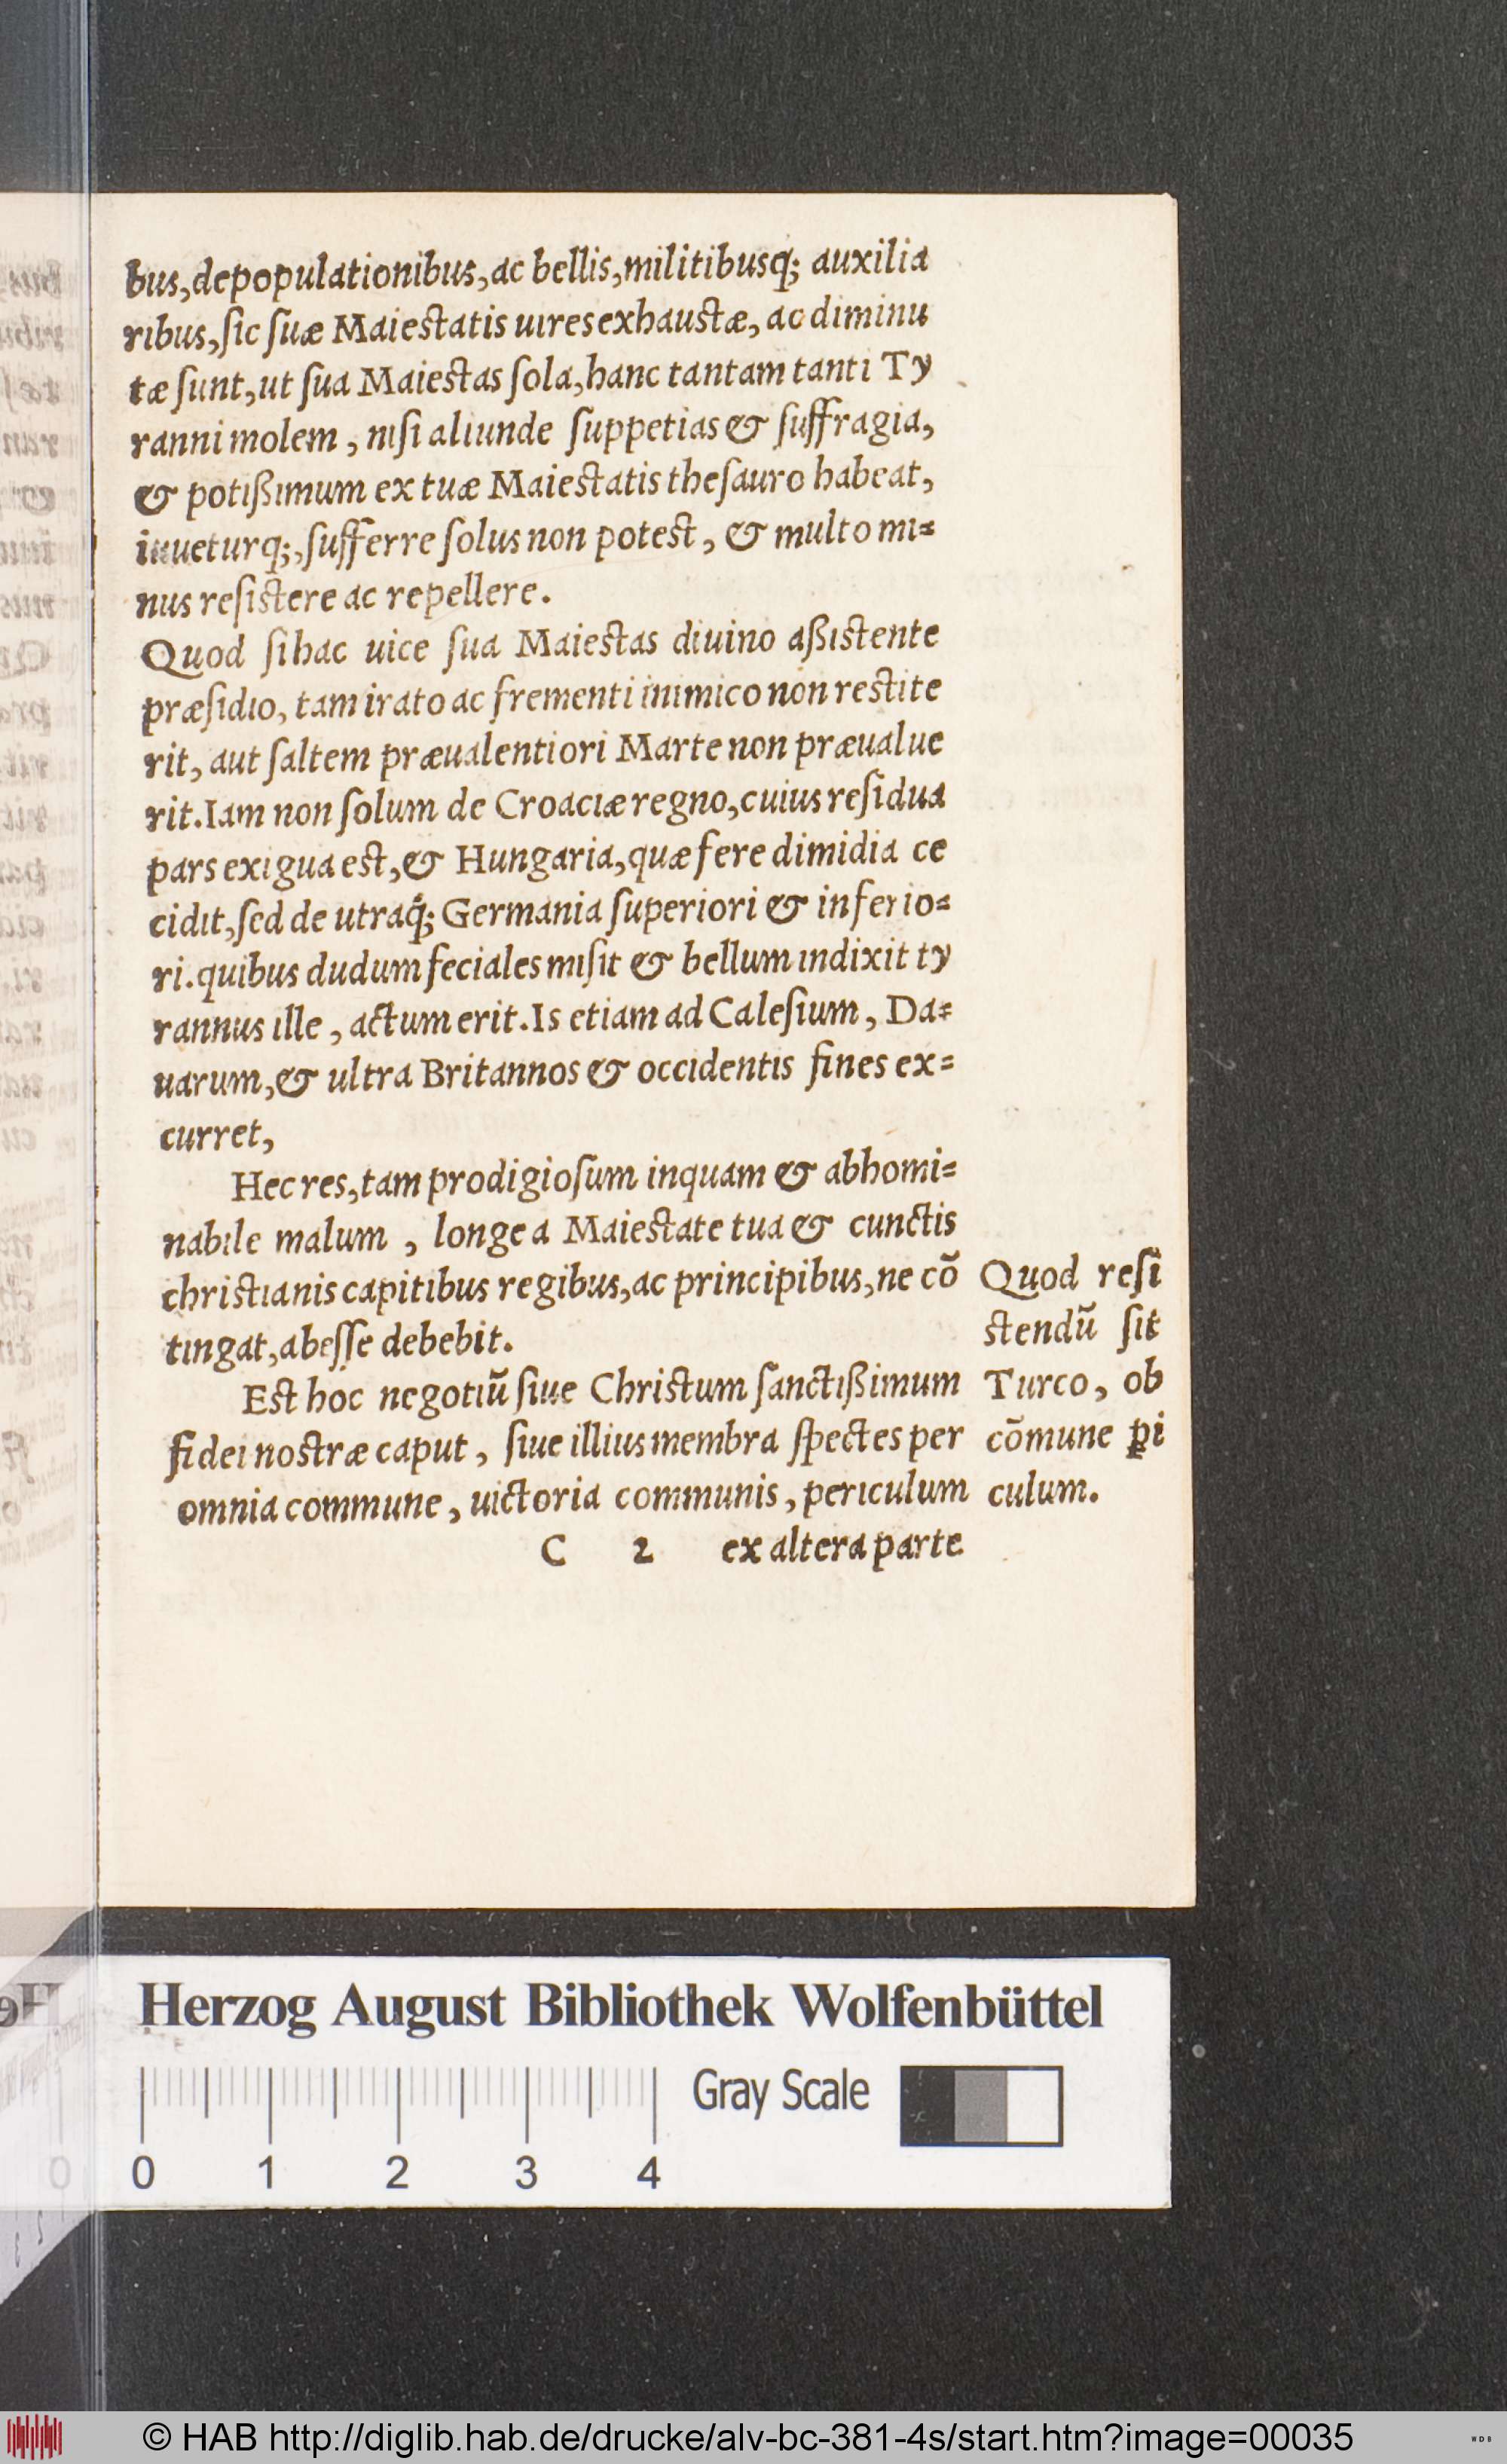 bus,depopulationibus,ac bellis,militibusq́; auxilia
ribus,ſic ſuæ Maieſtatis uires exhauſtæ, ac diminu
tæ ſunt,ut ſua Maieſtas ſola,hanc tantam tanti Ty
ranni molem , niſi aliunde ſuppetias & ſuffragia,
& potißimum ex tuæ Maieſtatis theſauro habeat,
iuueturq;,ſufferre ſolus non poteſt , & multo mi=
nus reſiſtere ac repellere.
Quod ſi hac uice ſua Maieſtas diuino aßiſtente
præſidio, tam irato ac frementi inimico non reſtite
rit, aut ſaltem præualentiori Marte non præualue
rit.Iam non ſolum de Croaciæ regno,cuius reſidua
pars exigua eſt,& Hungaria,quæ fere dimidia ce
cidit,ſed de utraq́; Germania ſuperiori & inferio=
ri.quibus dudum feciales miſit & bellum indixit ty
rannus ille , actum erit.Is etiam ad Caleſium , Da=
uarum,& ultra Britannos & occidentis fines ex=
curret,
Hec res,tam prodigioſum inquam & abhomi=
nabile malum , longe a Maieſtate tua & cunctis
chriſtianis capitibus regibus,ac principibus,ne cō
tingat,abeſſe debebit.
Eſt hoc negotiū ſiue Chriſtum ſanctißimum
fidei noſtræ caput , ſiue illius membra ſpectes per
omnia commune , uictoria communis , periculum
C 2 ex altera parte
Quod reſi
ſtendū ſit
Turco, ob
cōmune ꝑi
culum.
Herzog August Bibliothek Wolfenbüttel
Gray Scale
0 1 2 3 4
© HAB http://diglib.hab.de/drucke/alv-bc-381-4s/start.htm?image=00035